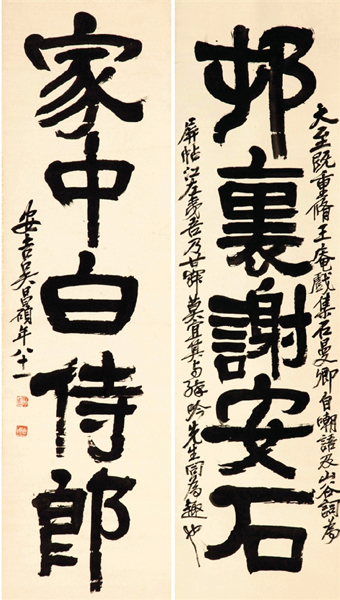 邨裏謝安石
大至既重脩王庵戲集石曼卿自嘲語及山谷詞為
屏帖江左夷吾乃甘卿
莫宜其与缶吟先生同為趣也
家中白侍郎
安吉吳昌碩年八十一